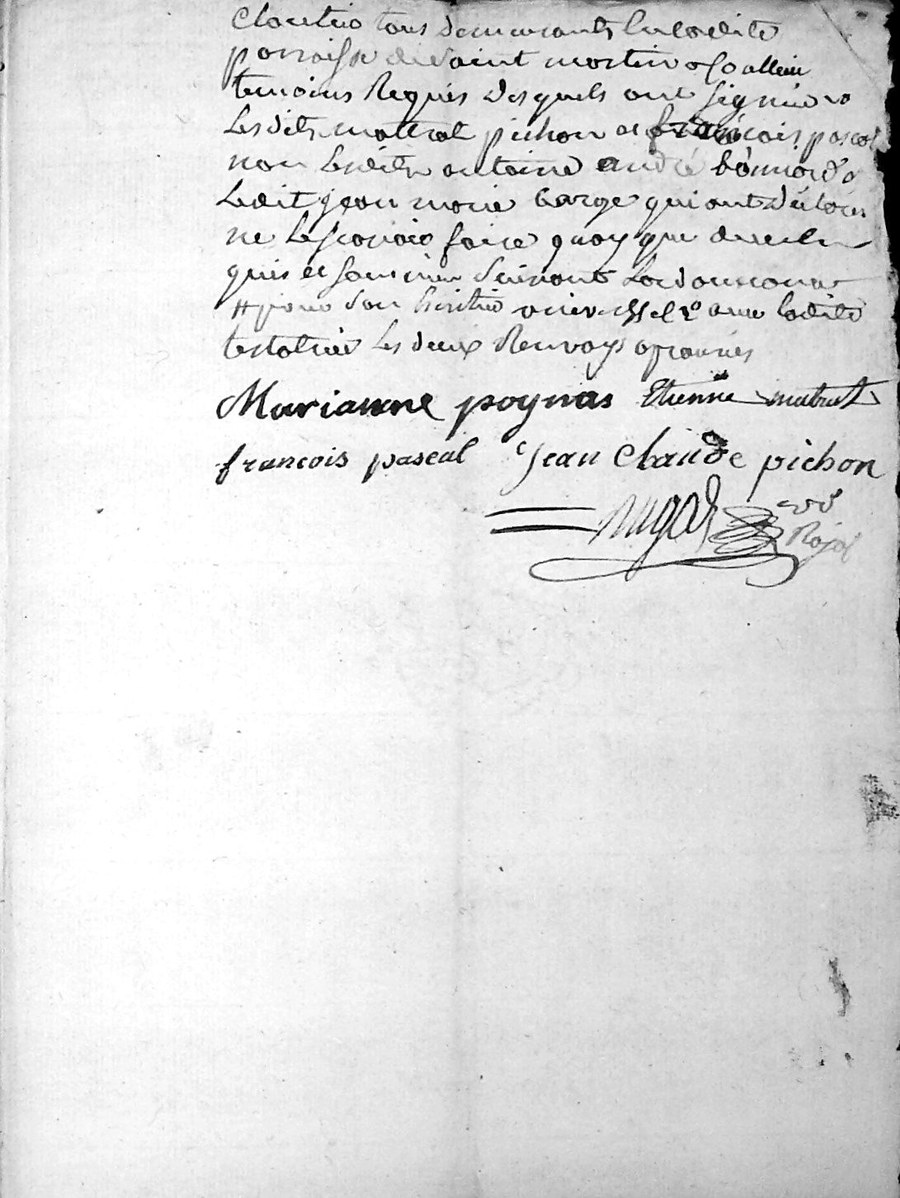 tous demeurants en ladite
paroisse de saint martin
temoins Requis Lesquels ont signé
Lesdits matrat pichon et francois pascal
non Lesdits antoine andré bonnard &
Ledit jean marie barge qui ont déclaré
ne Le scavoir faire quoy que de ce
quis et sommé suivant Lordonnance
# pour son heritier universelle avec ladite
testatrice Les deux Renvoys aprouvés
Marianne poynas Etienne matrat
francois pascal Jean Claude pichon
nugas
Royal